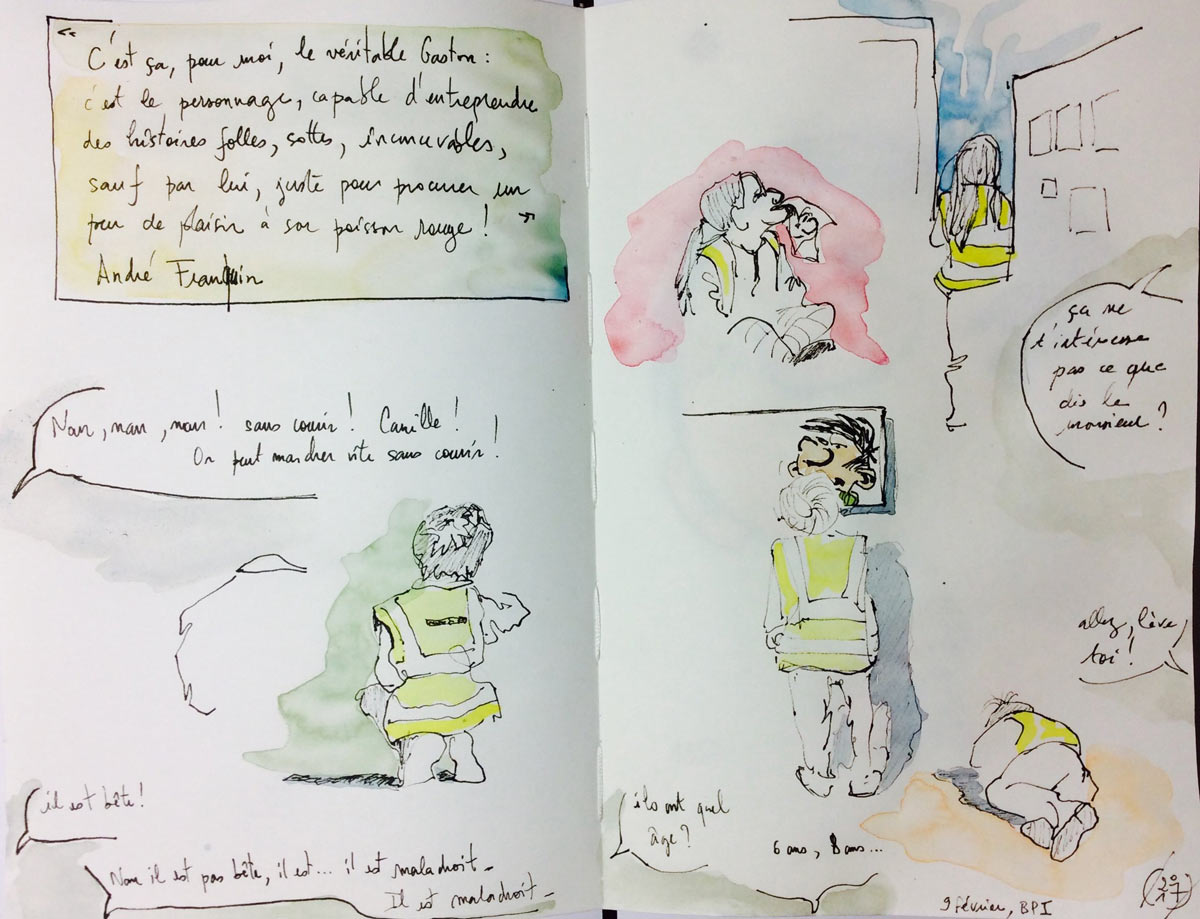 «
C'est ça, pour moi, le véritable Gaston :
c'est le personnage, capable d'entreprendre
des histoires folles, sottes, incroyables,
sauf par lui, juste pour procurer un
peu de plaisir à son poisson rouge ! »
André Franquin
Non, non, non ! sans courir ! Camille !
On peut marcher vite sans courir !
il est bête !
Non il est pas bête, il est... il est maladroit -
Il est maladroit -
ça ne
t'intéresse
pas ce que
dis le
monsieur ?
allez, lève
toi !
ils ont quel
âge ?
6 ans, 8 ans...
9 février, BPI
2017